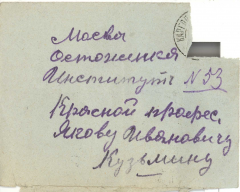 Москва
Остоженка
Институт № 53
Красной профес.
Якову Ивановичу
Кузьмину